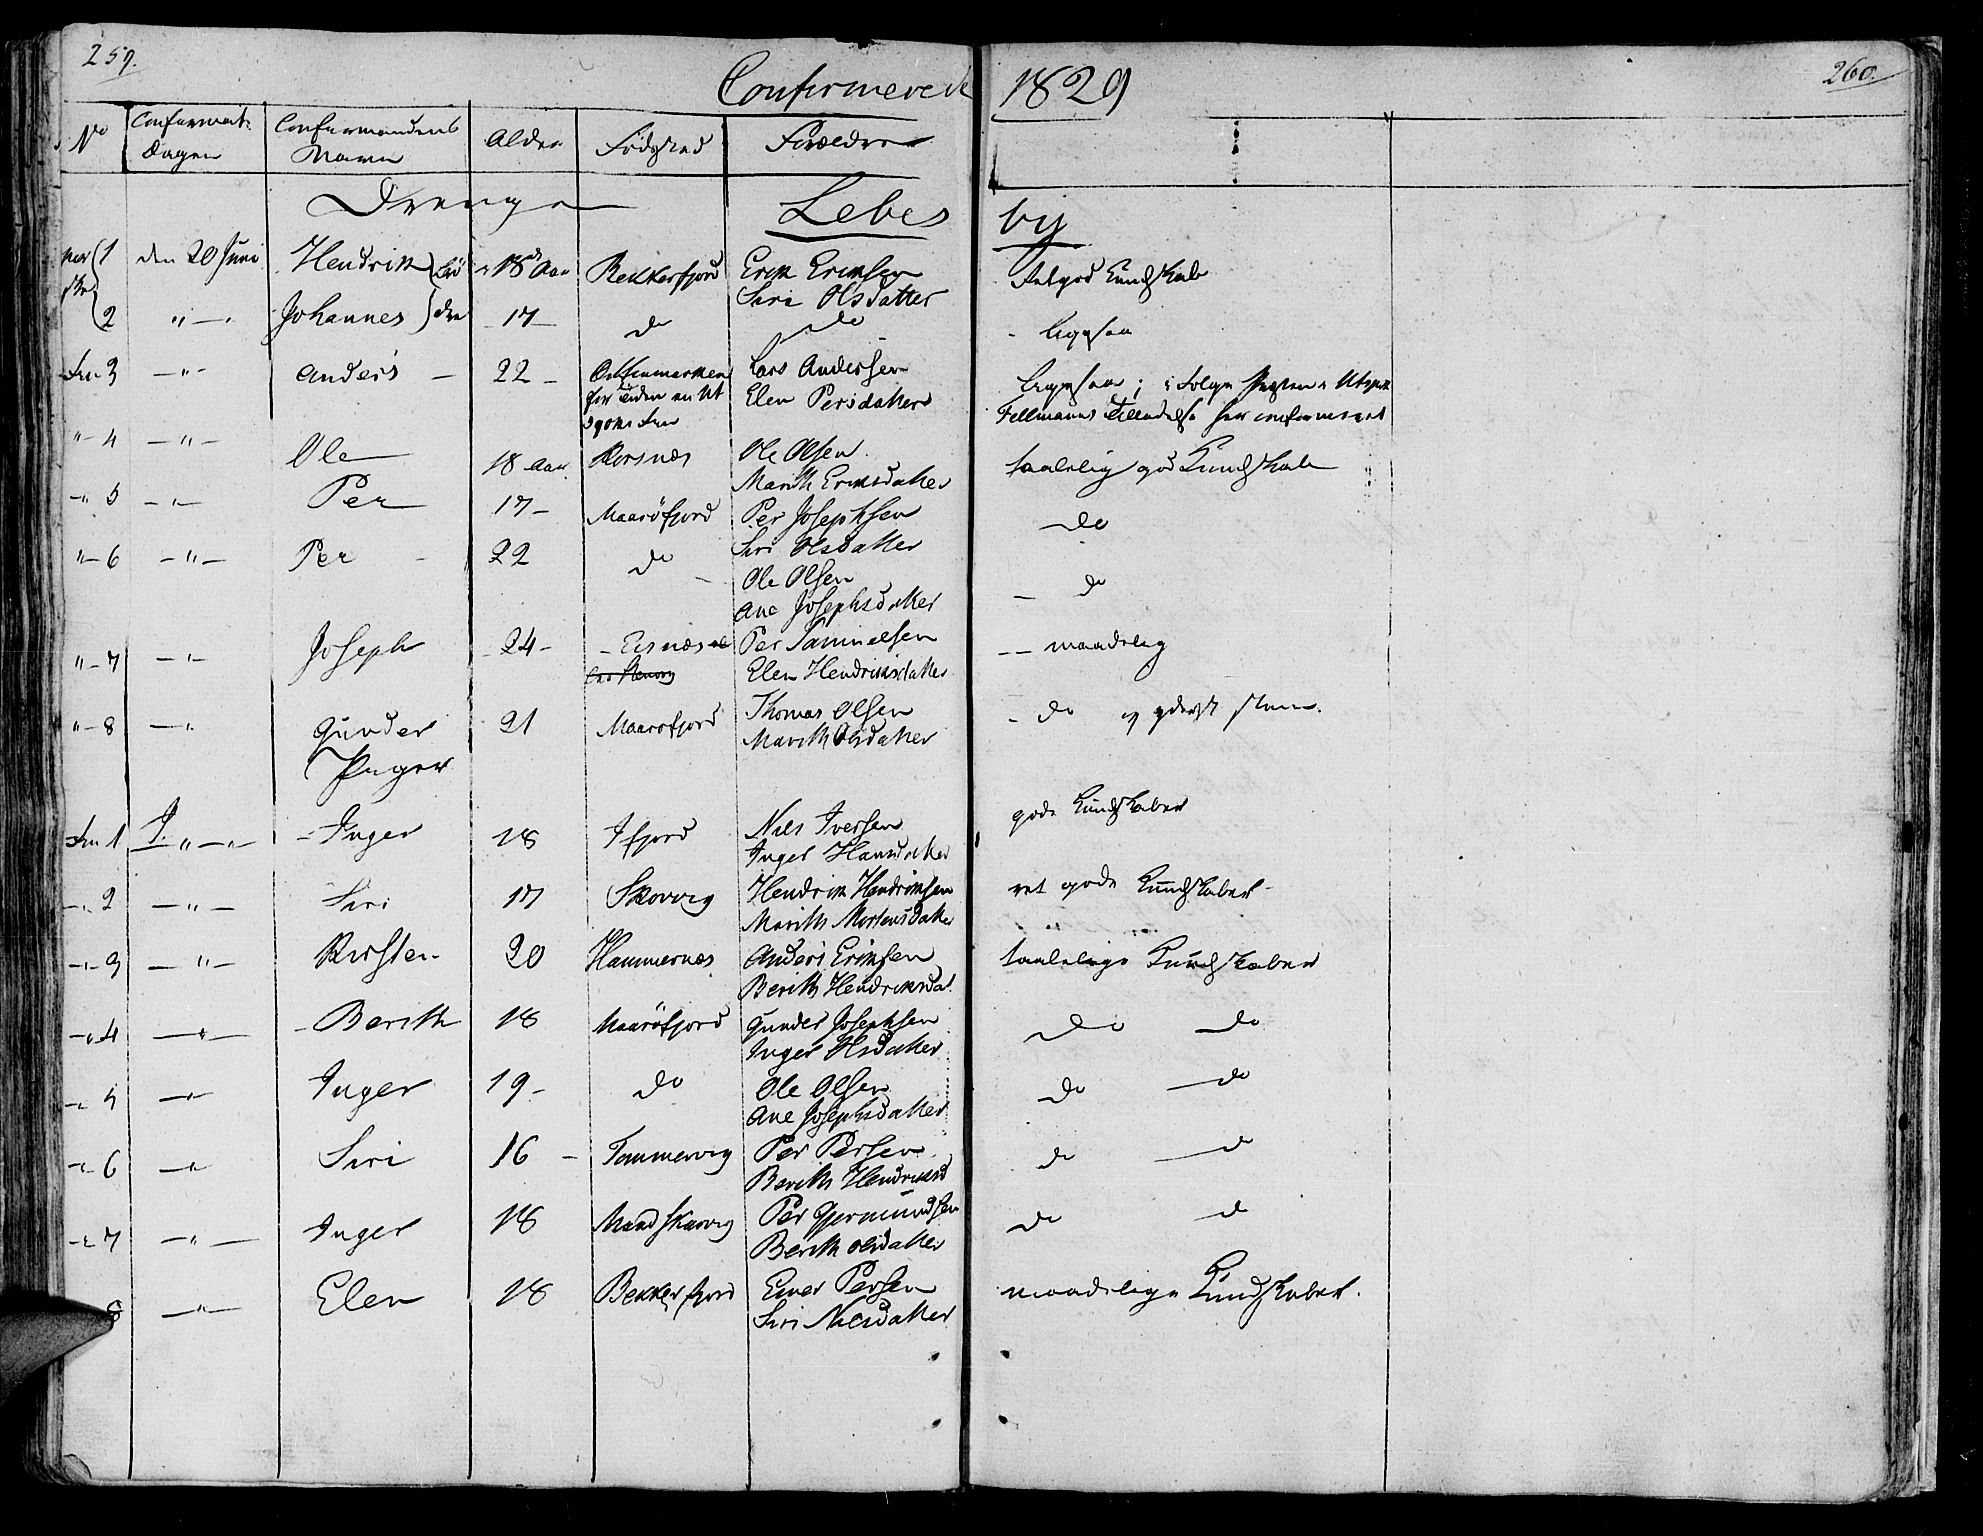 259.
260.
Confirmerede 1829
No Confirmat: Dagen Confirmandens Navn Alder Fødested Forældre
Drenge Lebes by
nor ske 1 den 20 Juni Hendrik 18 Aar Bekkerfjord Erik Eriksen Siri Olsdatter Retgod Kundskab
2 " — Johannes 17 do do - ligesaa
Fin 3 — " Anders 22 Lars Andersen Elen Persdatter Ligesaa; i Følge Fellmanns Tilladelse her confirmeret
" 4 — " — Ole 18 Aar Korsnæs Ole Olsen Marith Eriksdatter taalelig god Kundskab
" 5 — " — Per 17 Maaröfjord Per Josephsen Siri Olsdatter do
" 6 — " — Per 22 do Ole Olsen Ane Josephsdatter — do
" 7 — " — Joseph 24 Eisnæs Per Samuelsen Elen Hendriksdatter — maadelig
" 8 — " Gunder 21 Maaröfjord Thomas Olsen Marith Olsdatter - do og
Piger
Fin 1 — " — Inger 18 Ifjord Niels Iversen Inger Hansdatter gode Kundskaber
- 2 — " — Siri 17 Skovvig Hendrik Hendriksen Marith Mortensdatter ret gode Kundskaber
- 3 — " — Kirsten 20 Hammernæs Anders Eriksen Berith Hendriksdat. taalelige Kundskaber
- 4 — " — Berith 18 Maaröfjord Gunder Josephsen Inger Olsdatter do do
- 5 — " — Inger 19 do Ole Olsen Ane Josephsdatter do do
- 6 — " — Siri 16 Tømmervig Per Persen Berith Hendriksd do do
- 7 — " — Inger 18 Mandskarvig Per Gjermundsen Berith Olsdatter do do
8 — " — Elen 18 Bekkerfjord Einer Persen Siri Nielsdatter maadelige Kundskaber.